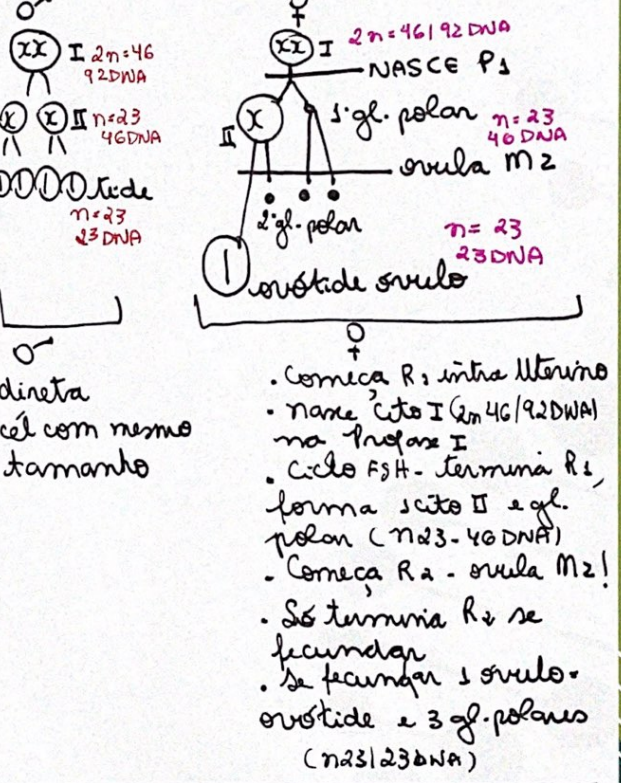 ♂
XX I 2n=46
92DNA
X X II n=23
46DNA
tide
n=23
23 DNA
♂
direta
cél com mesmo
tamanho
♀
XX I 2n=46/92 DNA
NASCE P1
X II 1ºgl. polar n=23
46 DNA
ovula M2
2ºgl. polar
n=23
23DNA
ovótide óvulo
♀
. Começa R1 intra Uterino
. nasce cito I (2n46/92DNA)
na Prófase I
. Ciclo FSH - termina R1,
forma scito II e gl.
polar (n23-46DNA)
- Começa R2 - ovula M2!
. Só termina R2 se
fecundar
. Se fecundar 1 óvulo-
ovótide e 3 gl. polares
(n23/23DNA)